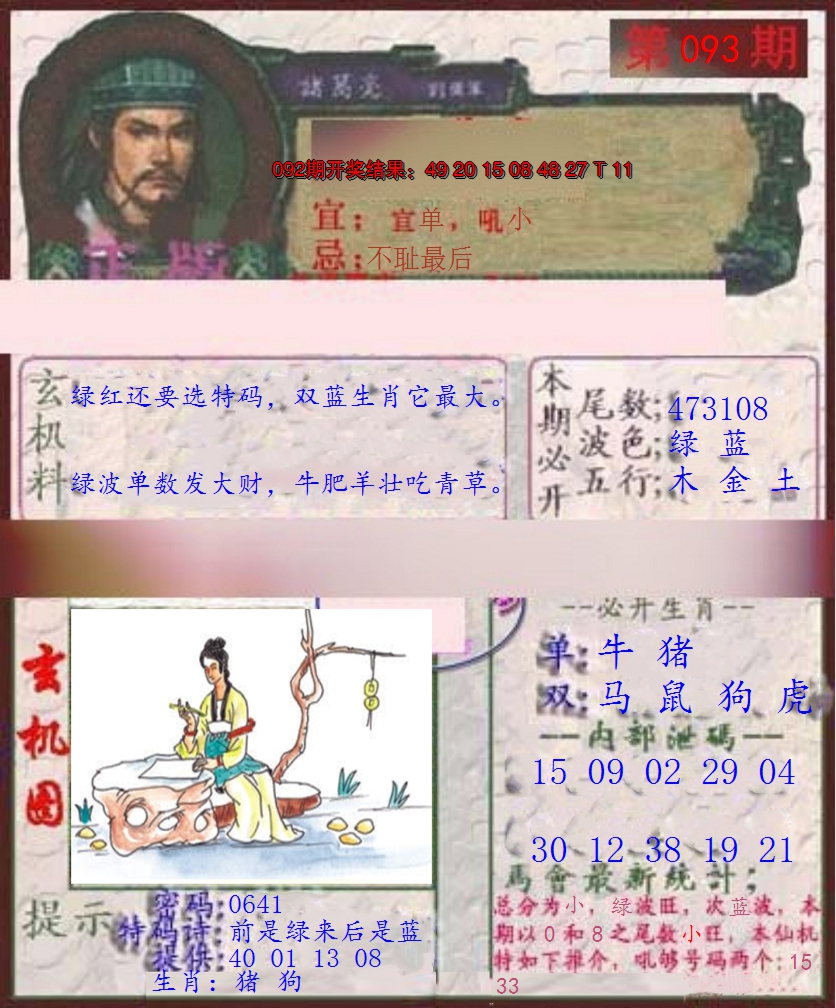 第 093 期
諸葛亮
092期开奖结果：49 20 15 08 48 27 T 11
宜：宜单，吼小
忌：不耻最后
正版
玄机料
绿红还要选特码，双蓝生肖它最大。
绿波单数发大财，牛肥羊壮吃青草。
本期必开
尾数；473108
波色；绿 蓝
五行；木 金 土
玄机图
--必开生肖--
单：牛 猪
双：马 鼠 狗 虎
—内部泄碼—
15 09 02 29 04
30 12 38 19 21
馬會最新統計；
总分为小，绿波旺，次蓝波，本
期以0和8之尾数小旺，本仙机
特如下推介，吼够号码两个:15
33
提示
密码:0641
特码诗:前是绿来后是蓝
提供:40 01 13 08
生肖：猪 狗